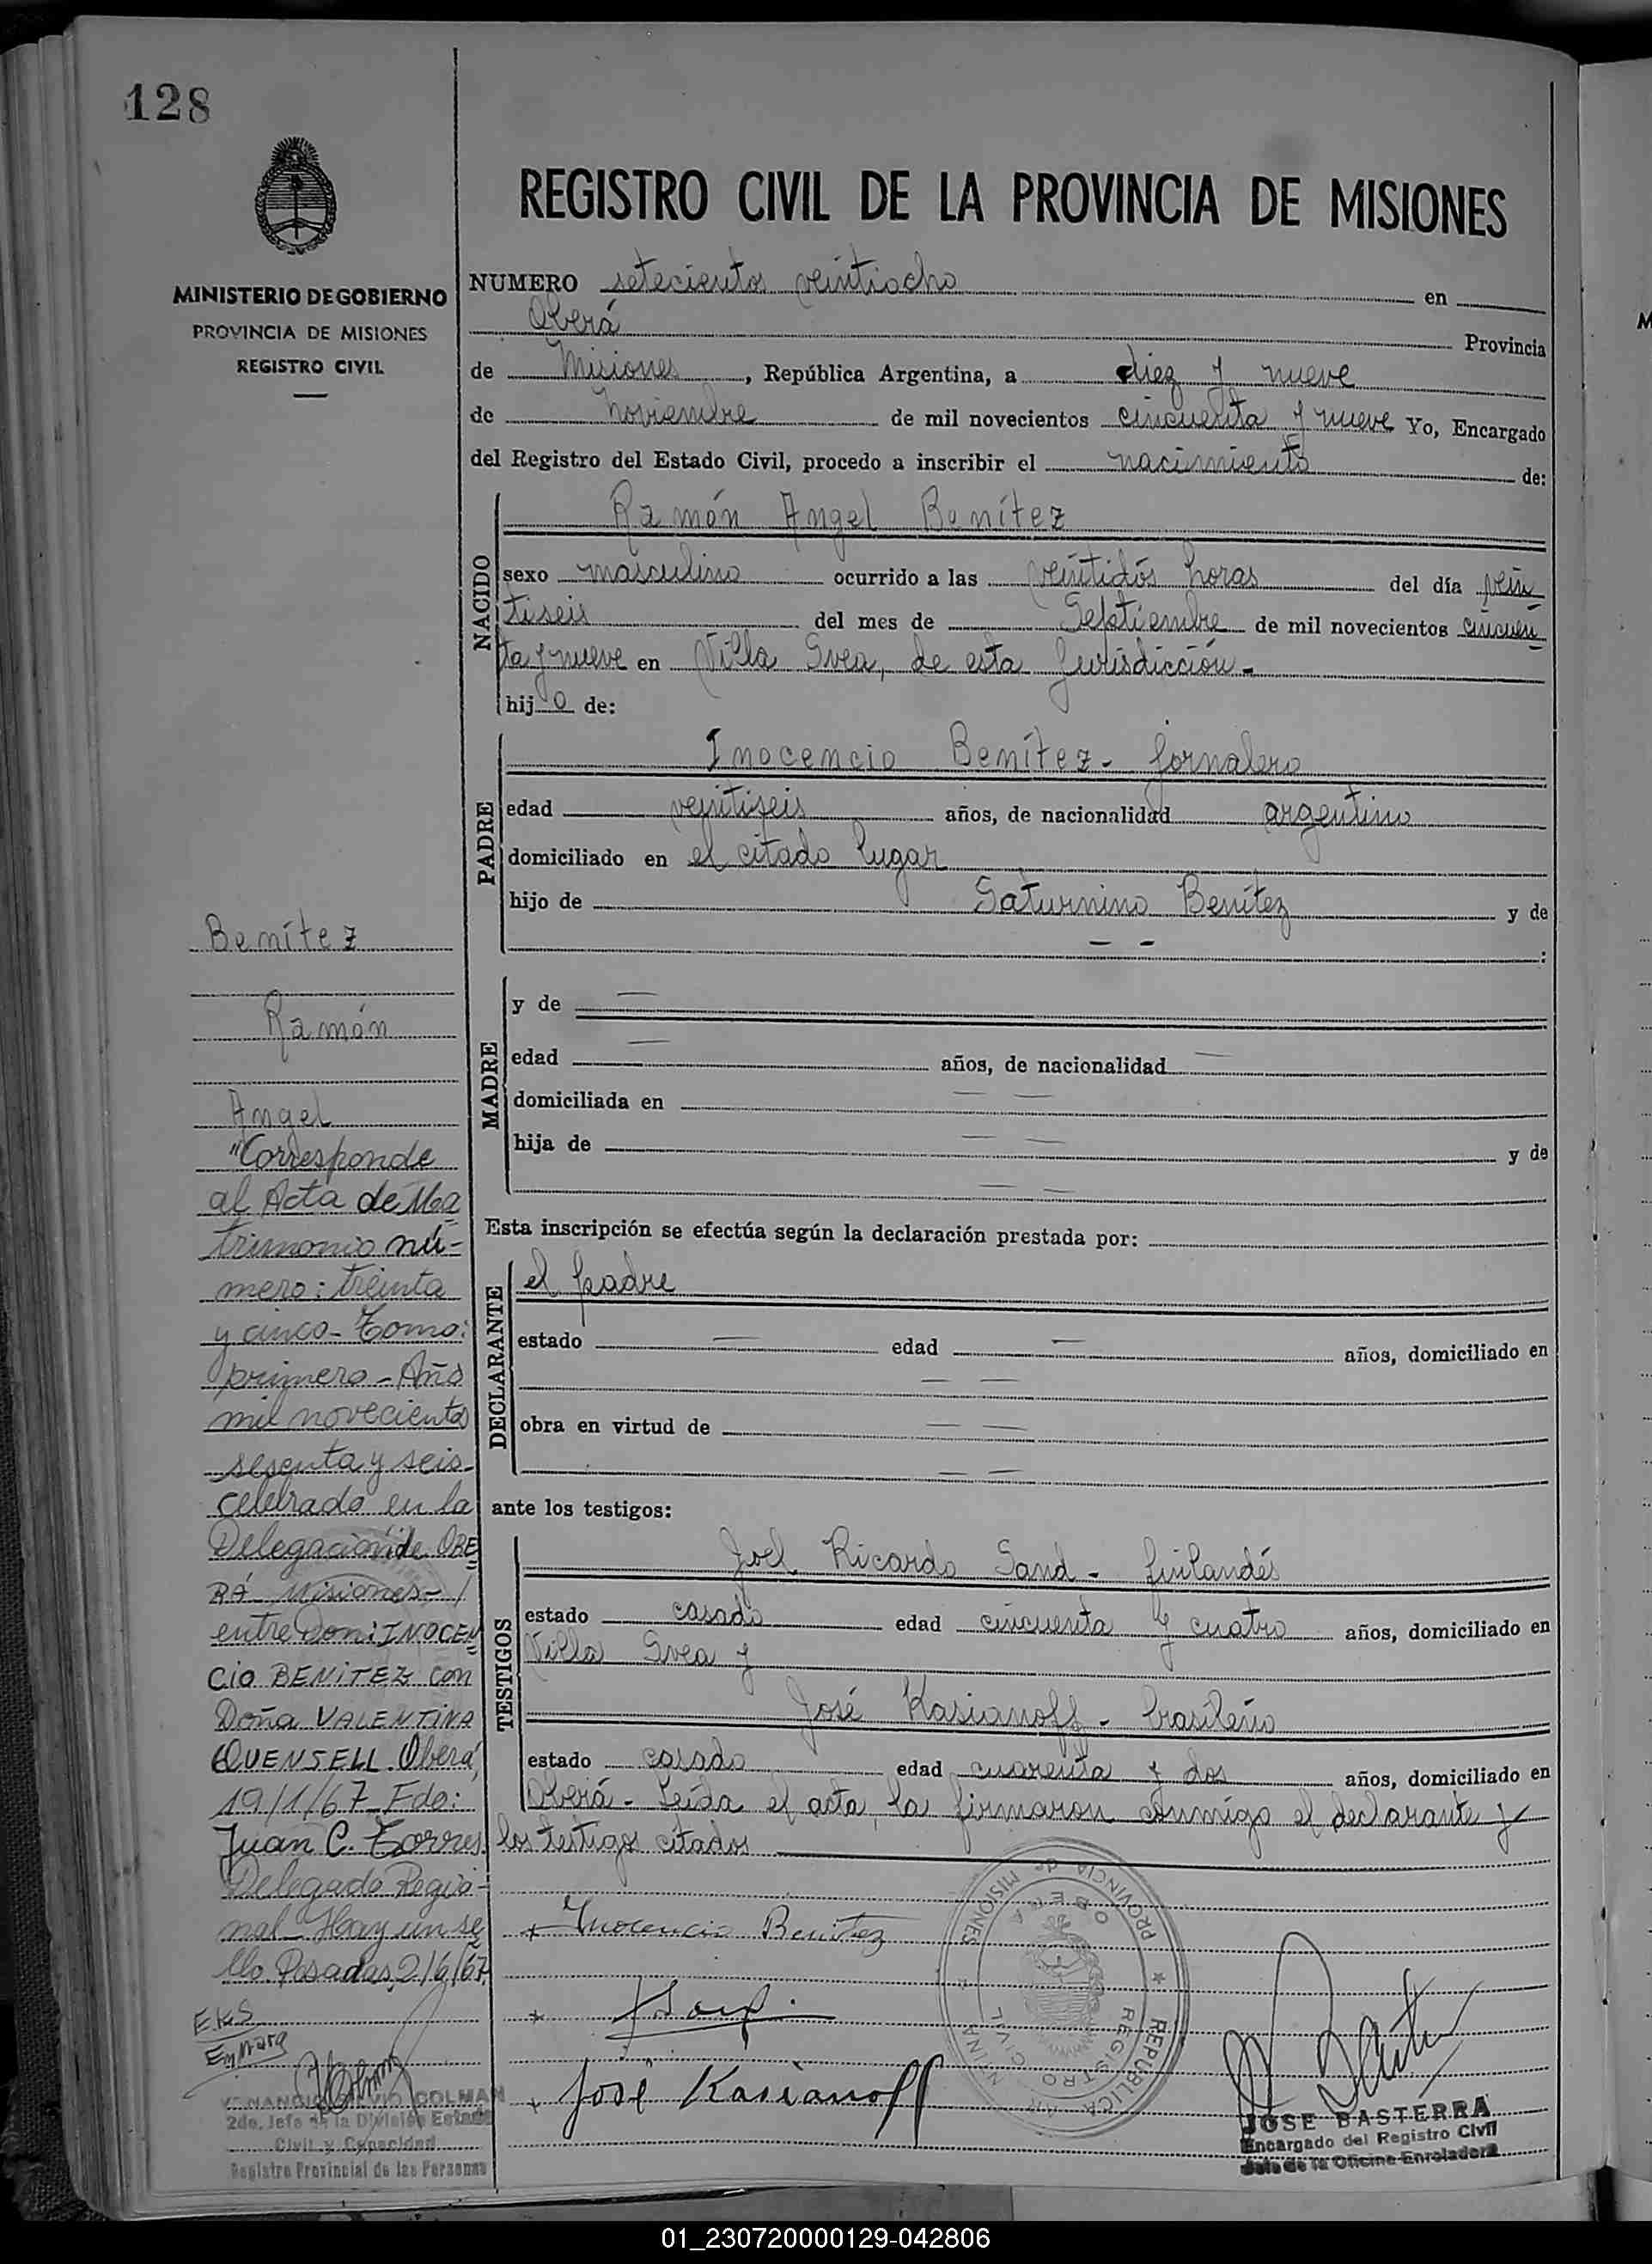 128
MINISTERIO DE GOBIERNO
PROVINCIA DE MISIONES
REGISTRO CIVIL
REGISTRO CIVIL DE LA PROVINCIA DE MISIONES
NUMERO setecientos veintiocho en
Oberá Provincia
de Misiones, República Argentina, a diez y nueve
de Noviembre de mil novecientos cincuenta y nueve Yo, Encargado
del Registro del Estado Civil, procedo a inscribir el nacimiento de:
NACIDO
Ramón Angel Benítez
sexo masculino ocurrido a las veintidós horas del día vein
tiseis del mes de Septiembre de mil novecientos cincuen
ta y nueve en Villa Svea, de esta Jurisdicción.-
hijo de:
PADRE
Inocencio Benítez - jornalero
edad veintiseis años, de nacionalidad argentino
domiciliado en el citado lugar
hijo de Saturnino Benítez y de
— — :
MADRE
y de —
edad — años, de nacionalidad —
domiciliada en — —
hija de — — y de
— —
Esta inscripción se efectúa según la declaración prestada por:
DECLARANTE
el padre
estado — edad — años, domiciliado en
— —
obra en virtud de — —
— —
ante los testigos:
TESTIGOS
Joel Ricardo Sand - finlandés
estado casado edad cincuenta y cuatro años, domiciliado en
Villa Svea y
José Kasianoff - brasileño
estado casado edad cuarenta y dos años, domiciliado en
Oberá - Leída el acta, la firmaron conmigo el declarante y
los testigos citados
+ Inocencio Benitez
+
+ José Kasianoff
PROVINCIA de MISIONES ★ REPUBLICA ARGENTINA
OBERA
REGISTRO CIVIL
JOSE BASTERRA
Encargado del Registro Civil
Jefe de la Oficina Enroladora
Benítez
Ramón
Angel
"Corresponde
al Acta de Ma
trimonio nú-
mero: treinta
y cinco- Tomo:
primero - Año
mil novecientos
sesenta y seis
celebrado en la
Delegación de OBE
RÁ Misiones-
entre Don: INOCEN
Cio BENITEZ con
Doña VALENTINA
QUENSELL. Oberá,
19/1/67- Fdo:
Juan C. Torres
Delegado Regio-
nal- Hay un se
llo. Posadas, 2/6/67
VENANCIO SILVIO COLMAN
2do. Jefe de la División Estado
Civil y Capacidad
Registro Provincial de las Personas
01_230720000129-042806